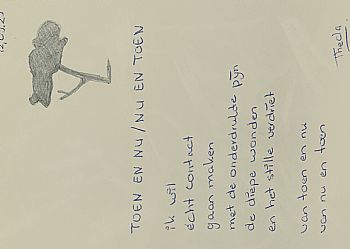 TOEN EN NU / NU EN TOEN
ik wil
écht contact
gaan maken
met de onderdrukte pijn
de diepe wonden
en het stille verdriet
van toen en nu
van nu en toen
Thecla